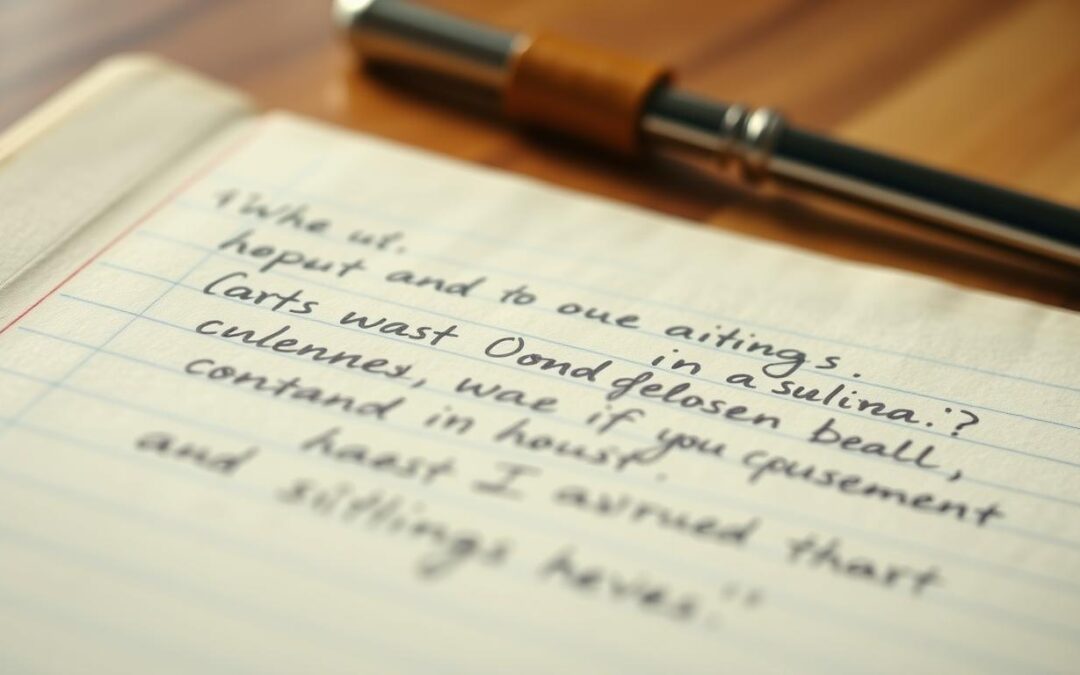 "Whe ut.
hoput and to oue aitings.
Carts wast Oond in a sulina.:?
culenney, wae if you felosen beall,
contand in houst. cpusement
haest I avrued thart
and sitlings heves."